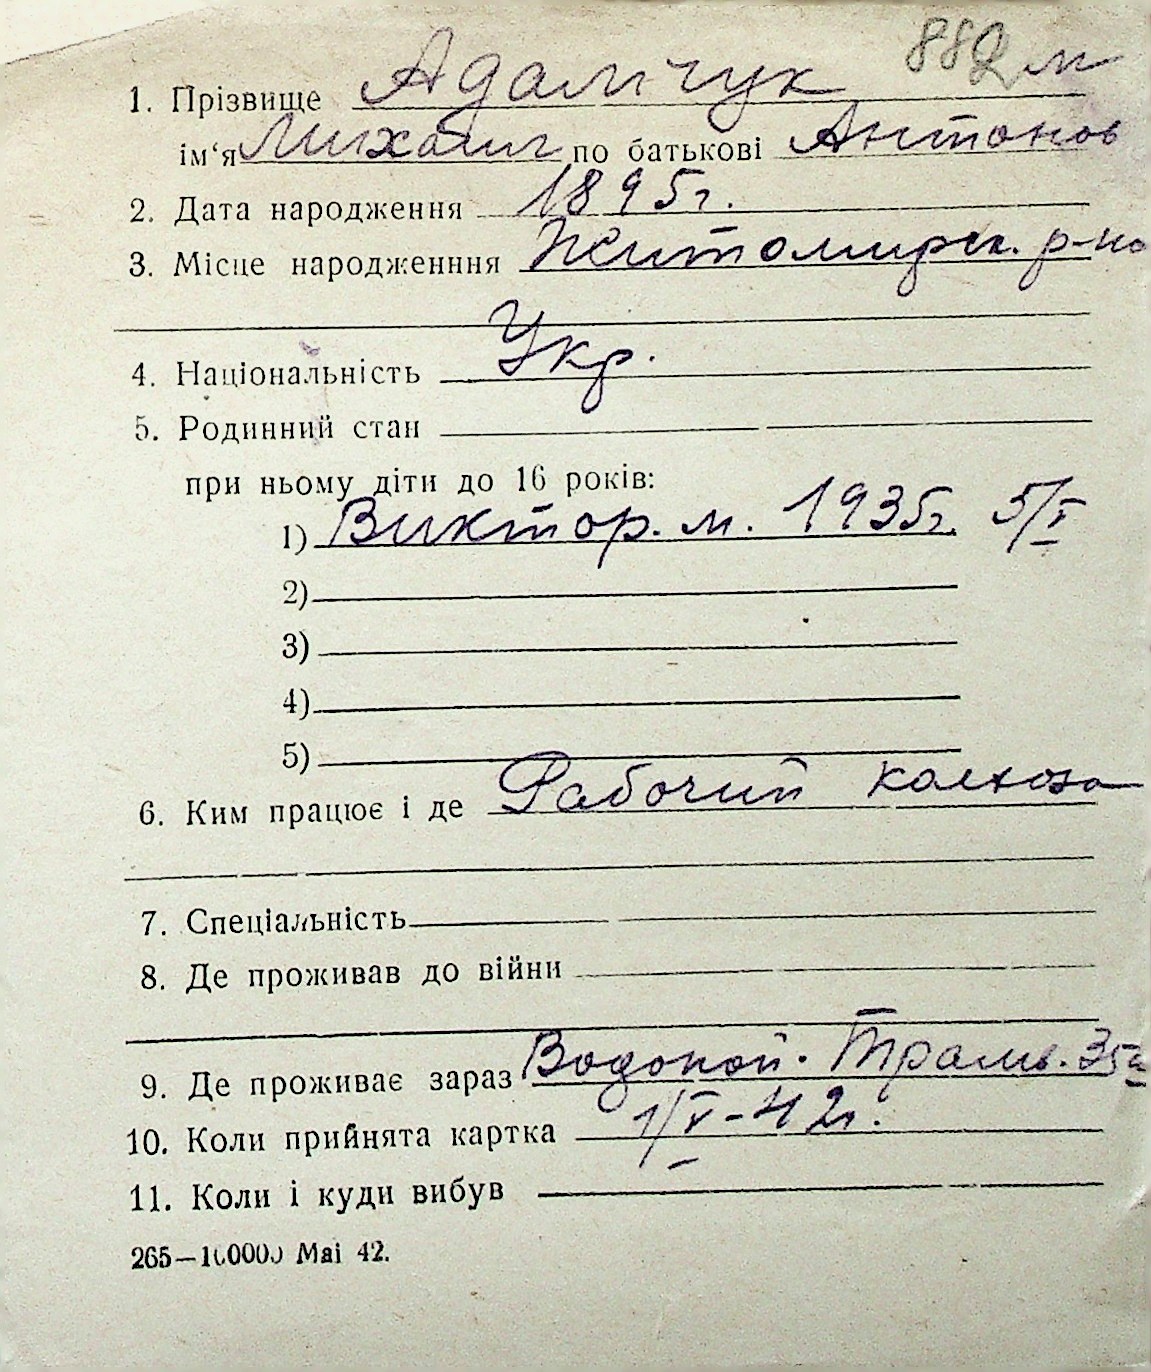 882 м
1. Прізвище Адамчук
ім‘я Михаил по батькові Антонов
2. Дата народження 1895г.
3. Місце народженння Житомирск. р-на
4. Національність Укр.
5. Родинний стан
при ньому діти до 16 років:
1) Виктор. м. 1935г. 5/V
2)
3)
4)
5)
6. Ким працює і де Рабочий колхоза
7. Спеціальність
8. Де проживав до війни
9. Де проживає зараз Водопой. Трамв. 35а
10. Коли прийнята картка 1/V-42г.
11. Коли і куди вибув
265—100000 Mai 42.